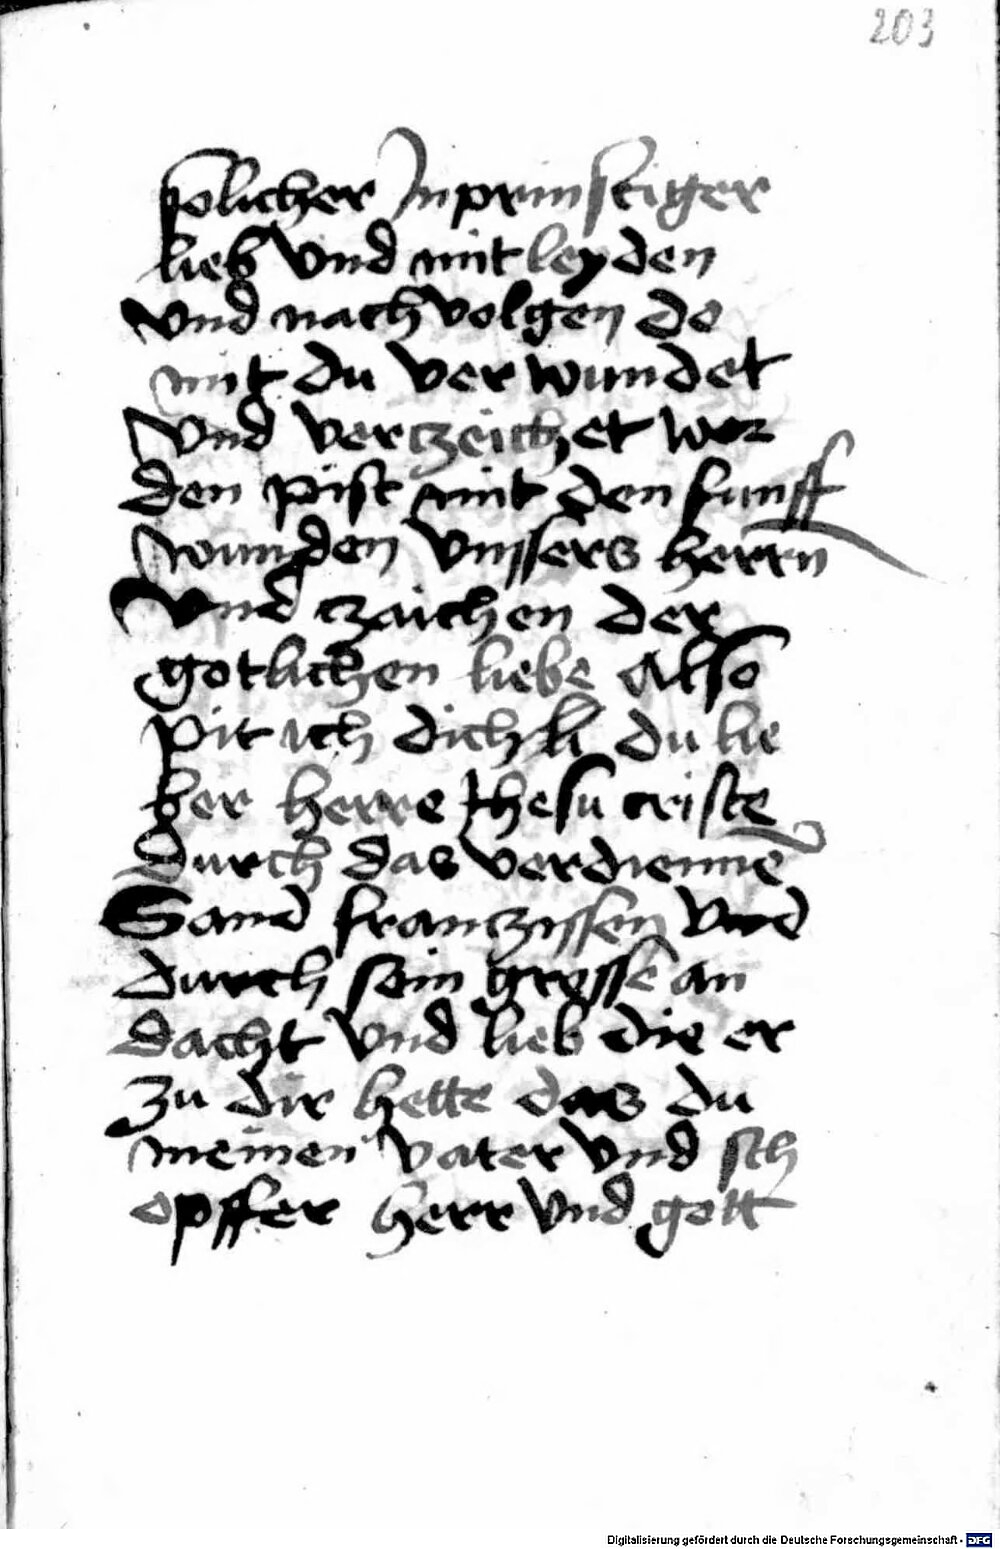 203
solicher Inprinstiger
lieb vnd mit leyden
vnd nach volgen do
mit du ver wundet
vnd verczeichet wor
den pist mit den funff
wunden vnssers herrn
vnd czaichen der
gotlichen liebe Also
pit ich dich li du lie
ber herre Jhesu criste
durch das verdienne
Sand franczissen vnd
durch sein grosse an
dacht vnd lieb die er
zu dir hette das du
meinen vater vnd sch
opffer herr vnd gott
Digitalisierung gefördert durch die Deutsche Forschungsgemeinschaft - DFG